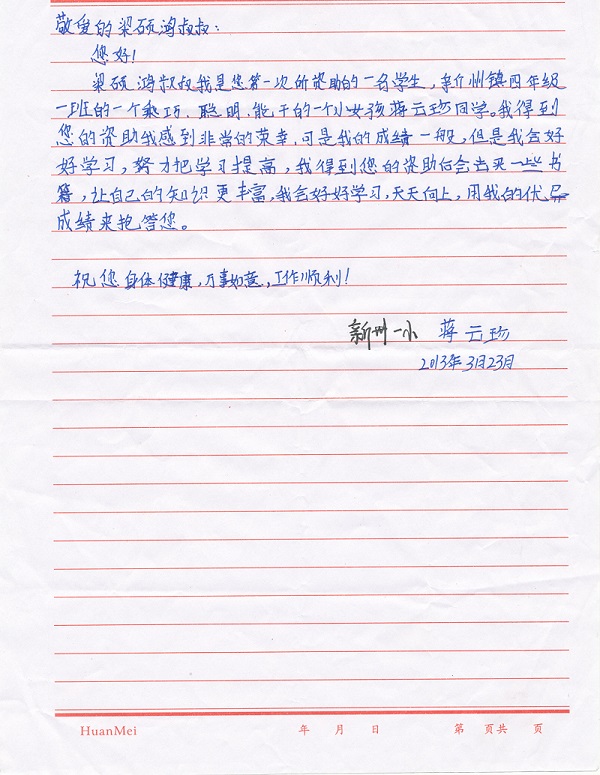 敬爱的梁硕鸿叔叔：
您好！
梁硕鸿叔叔我是您第一次所资助的一名学生，新州镇四年级
一班的一个乖巧、聪明、能干的一个小女孩蒋云珍同学。我得到
您的资助我感到非常的荣幸，可是我的成绩一般，但是我会好
好学习，努力把学习提高，我得到您的资助后会去买一些书
籍，让自己的知识更丰富，我会好好学习，天天向上，用我的优异
成绩来抱答您。
祝您身体健康，万事如意，工作顺利！
新州一小 蒋云珍
2013年3月23月
HuanMei 年 月 日 第 页共 页